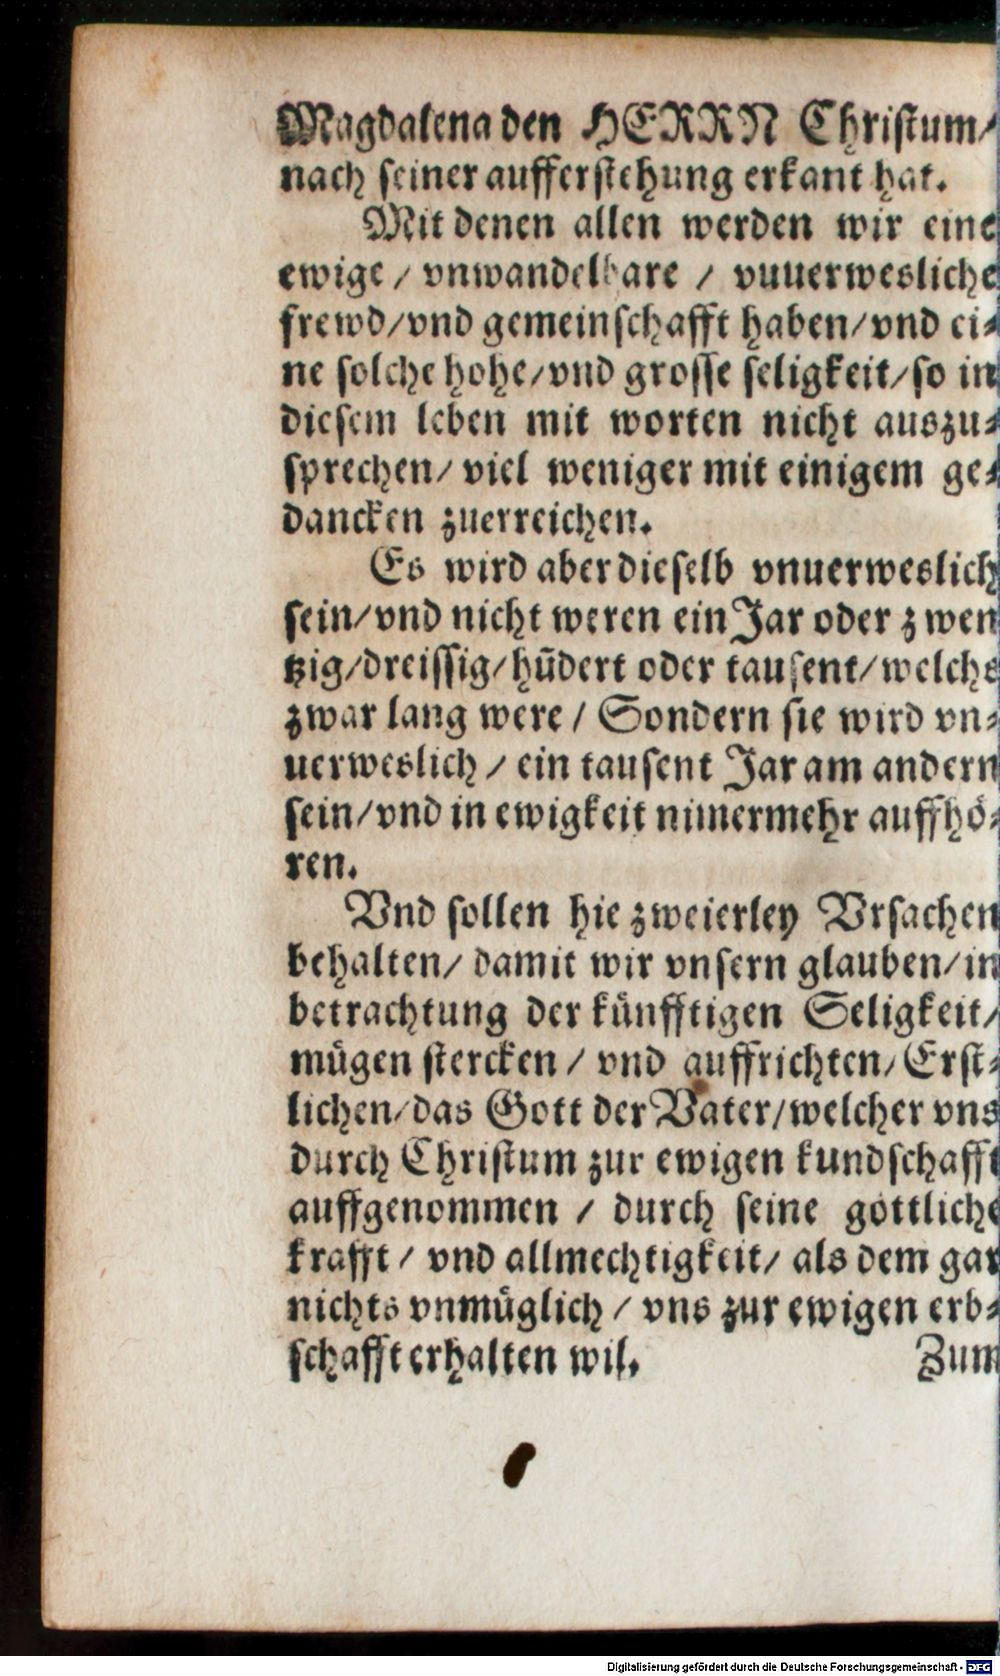 Magdalena den HERRN Christum/
nach seiner aufferstehung erkant hat.
Mit denen allen werden wir eine
ewige / vnwandelbare / vuuerwesliche
frewd/vnd gemeinschafft haben/vnd ei⸗
ne solche hohe/vnd grosse seligkeit/so in
diesem leben mit worten nicht auszu⸗
sprechen/ viel weniger mit einigem ge⸗
dancken zuerreichen.
Es wird aber dieselb vnuerweslich
sein/vnd nicht weren ein Jar oder zwen
tzig/dreissig/hūdert oder tausent/welchs
zwar lang were / Sondern sie wird vn⸗
uerweslich / ein tausent Jar am andern
sein/vnd in ewigkeit nimermehr auffhö⸗
ren.
Vnd sollen hie zweierley Vrsachen
behalten/ damit wir vnsern glauben/in
betrachtung der künfftigen Seligkeit/
mügen stercken / vnd auffrichten/ Erst⸗
lichen/das Gott der Vater/welcher vns
durch Christum zur ewigen kundschafft
auffgenommen / durch seine göttliche
krafft / vnd allmechtigkeit/ als dem gar
nichts vnmüglich / vns zur ewigen erb⸗
schafft erhalten wil. Zum
Digitalisierung gefördert durch die Deutsche Forschungsgemeinschaft - DFG